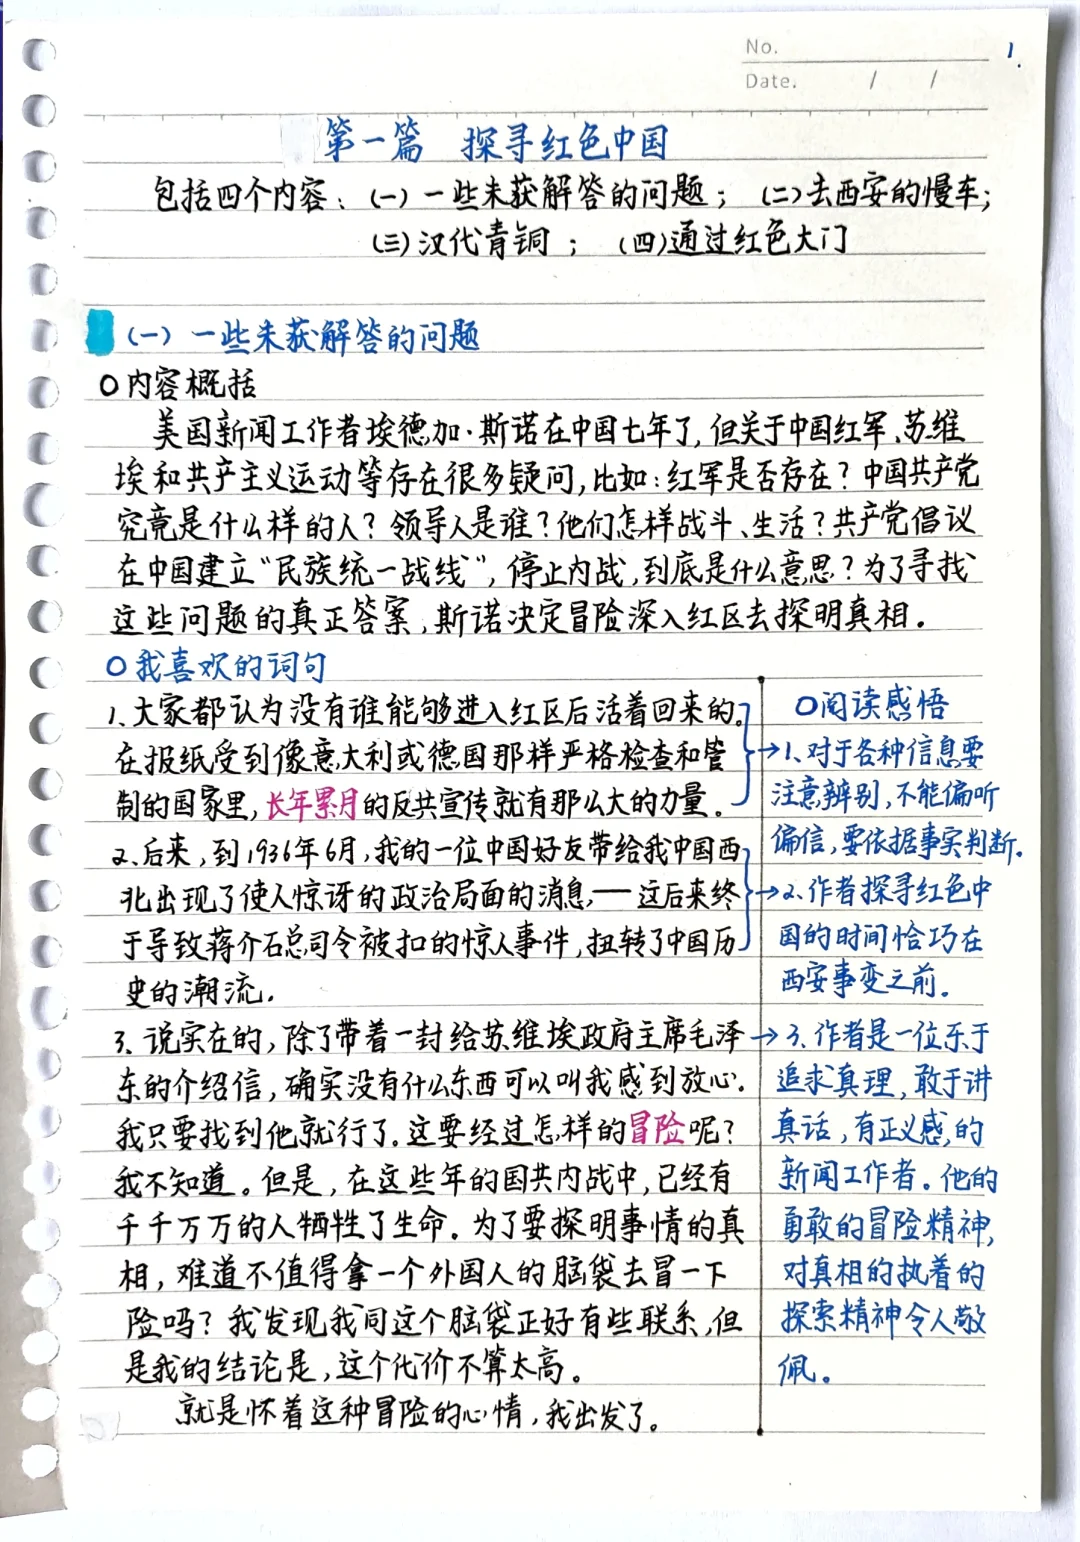 No.
1.
Date. / /
第一篇 探寻红色中国
包括四个内容：(一)一些未获解答的问题；(二)去西安的慢车；
(三)汉代青铜；(四)通过红色大门
(一)一些未获解答的问题
○内容概括
美国新闻工作者埃德加·斯诺在中国七年了，但关于中国红军、苏维
埃和共产主义运动等存在很多疑问，比如：红军是否存在？中国共产党
究竟是什么样的人？领导人是谁？他们怎样战斗、生活？共产党倡议
在中国建立“民族统一战线”，停止内战，到底是什么意思？为了寻找
这些问题的真正答案，斯诺决定冒险深入红区去探明真相.
○我喜欢的词句
1、大家都认为没有谁能够进入红区后活着回来的。
在报纸受到像意大利或德国那样严格检查和管
制的国家里，长年累月的反共宣传就有那么大的力量.
2、后来，到1936年6月，我的一位中国好友带给我中国西
北出现了使人惊讶的政治局面的消息，——这后来终
于导致蒋介石总司令被扣的惊人事件，扭转了中国历
史的潮流.
3、说实在的，除了带着一封给苏维埃政府主席毛泽
东的介绍信，确实没有什么东西可以叫我感到放心.
我只要找到他就行了.这要经过怎样的冒险呢？
我不知道。但是，在这些年的国共内战中，已经有
千千万万的人牺牲了生命.为了要探明事情的真
相，难道不值得拿一个外国人的脑袋去冒一下
险吗？我发现我同这个脑袋正好有些联系，但
是我的结论是，这个代价不算太高。
就是怀着这种冒险的心情，我出发了。
○阅读感悟
→1、对于各种信息要
注意辨别，不能偏听
偏信，要依据事实判断.
→2、作者探寻红色中
国的时间恰巧在
西安事变之前.
→3、作者是一位乐于
追求真理，敢于讲
真话，有正义感的
新闻工作者。他的
勇敢的冒险精神，
对真相的执着的
探索精神令人敬
佩。